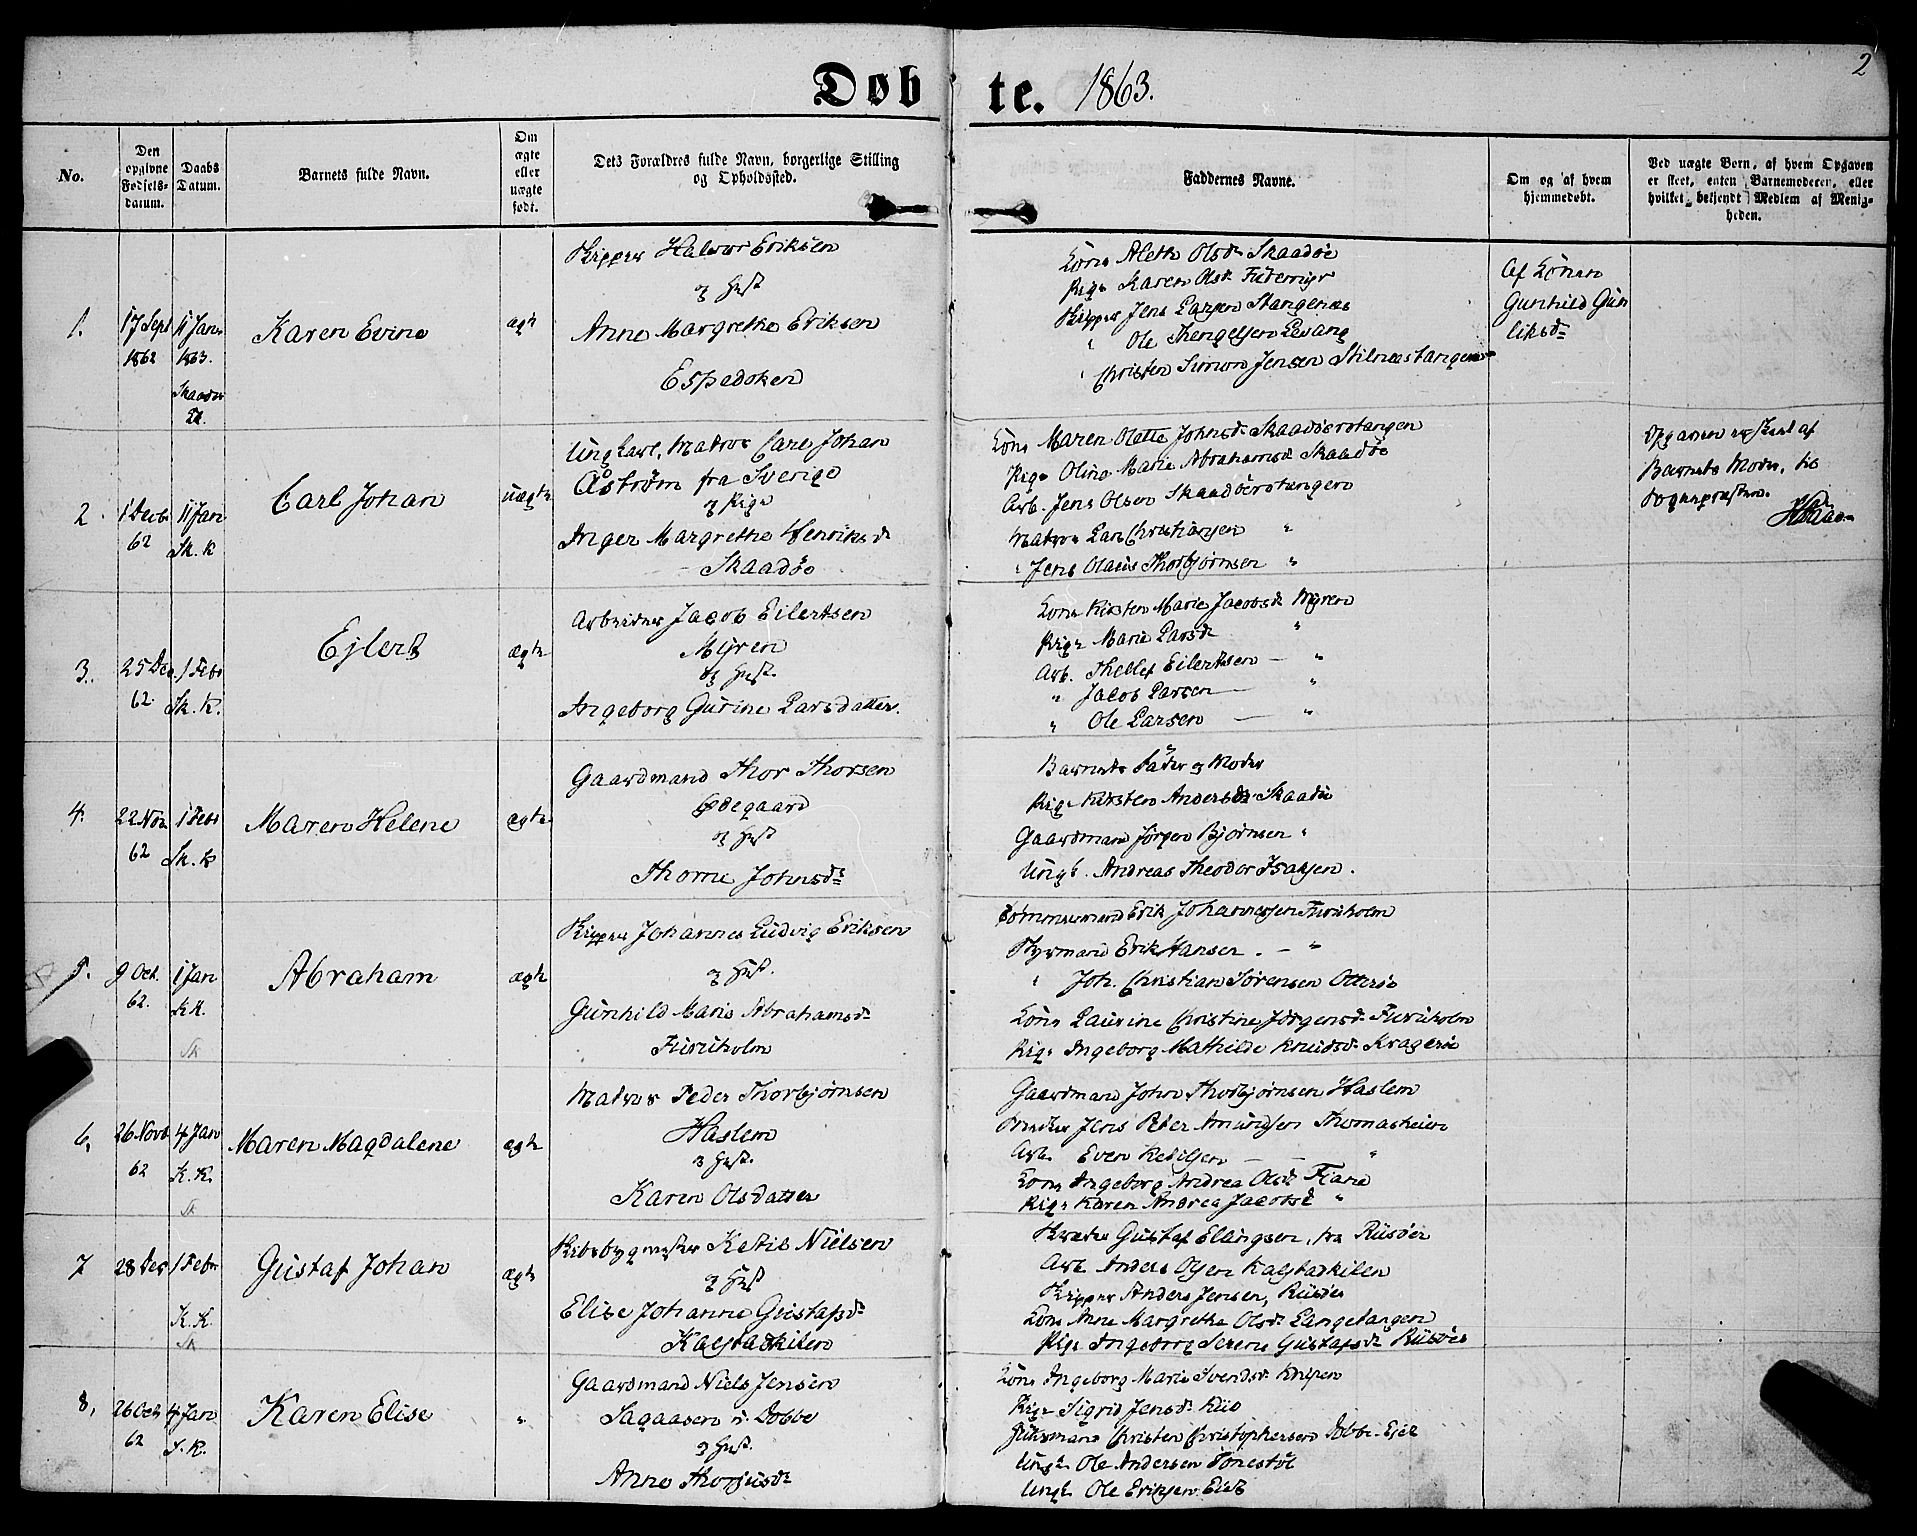 2
Døbte. 1863.
No.
Den opgivne Fødsels-datum.
Daabs Datum.
Barnets fulde Navn.
Om ægte eller uægte født.
Dets Forældres fulde Navn, borgerlige Stilling og Opholdssted.
Faddernes Navne.
Om og af hvem hjemmedøbt.
Ved uægte Børn, af hvem Opgaven er skeet, enten Barnemoderen, eller hvilket bekjendt Medlem af Menigheden.
1.
17 Sept 1862
11 Jan 1863.
Karen Evine
ægt
Skipper Halvor Eriksen
og Hust
Anne Margrethe Eriksen
Espedoken
Kone Aleth Olsd. Skaadøe
Pige Karen Olsd.
Skipper Jens Larsen Stangenæs
" Ole Levang
" Christen Simon Jensen Stilnæstangen
Af Konen
Gunhild Gun
liksd.
2
1 Decbr 62
11 Jan Sk. K
Carl Johan
uægte
Ungkarl, Matros Carl Johan
Åstrøm fra Sverige
og Pige
Inger Margrethe Henriksd
Skaadøe
Kone Maren Olette Johnsd. Skaadøerstangen
Pige Oline Marie Abrahamsd. Skaadøe
Arb. Jens Olsen Skaadøerstangen
Matros Lars Christiansen "
" Jens Olaus Thorbjørnsen "
Opgaven er skeet af
Barnets Moder, til
Sognepræsten.
3.
25 Dec. 62.
1 Febr Sk. K.
Ejlert
ægte
Arbeider Jacob Eilertsen
Myren
og Hust.
Ingeborg Gurine Larsdatter.
Kone Kirsten Marie Jacobsd. Myren
Pige Marie Larsd. "
Arb. Thellef Eilertsen — "
" Jacob Larsen — "
" Ole Larsen — "
4.
22 Nov 62
1 Febr Sk. K
Maren Helene
ægte
Gaardmand Thor Thorsen
Ødegaard
og Hust
Thorne Johnsd.
Barnets Fader og Moder
Pige Kirsten Andersd. Skaadøe
Gaardmand Jørgen Bjørnsen "
Ungk. Andreas Theodor Isaksen.
5.
9 Oct. 62.
1 Jan K.K.
Sk
Abraham
ægte
Skipper Johannes Ludvig Eriksen
og Hust.
Gunhild Marie Abrahamsd.
Furuholm
Tømmermand Erik Johannesen Furuholm
Styrmand Erik Hansen. — "
" Joh. Christian Sørensen Otterøe
Kone Laurine Christine Jørgensd. Furuholm
Pige Ingeborg Mathilde Knudsd. Kragerøe
6.
26 Novb 62
4 Jan K. K.
Sk
Maren Magdalene
ægte
Matros Peder Thorbjørnsen
Haslem
og Hust.
Karen Olsdatter
Gaardmand John Thorbjørnsen Haslem
Jens Peter Amundsen Thomasheien
Arb. Even Ketilsen — — "
Kone Ingeborg Andrea Olsd. Fiane
Pige Karen Andrea Jacobsd. "
7
28 Dec
1 Febr K. K.
Sk
Gustaf Johan
ægte
Skibsbygmester Ketil Nielsen
og Hust
Elise Johanne Gustafsd.
Kalstadkilen
Gustaf Ellingsen, fra Riisøer
Arb. Anders Olsen Kalstadkilen
Skipper Anders Jensen, Riisøer
Kone Anne Margrethe Olsd. Langetangen
Pige Ingeborg Serene Gustafsd. Riisøer
8.
26 Oct 62
4 Jan S. K.
Karen Elise
"
Gaardmand Niels Jensen
Sagaasen u. Dobbe
og Hust.
Anne Thorjusd.
Kone Ingeborg Marie Svendsd. Knipen
Pige Sigrid Jensd.
Christen Christophersen Dobbe-Eiet
Ungk. Ole Andersen Tonestøl
Ungk. Ole Eriksen Eiet